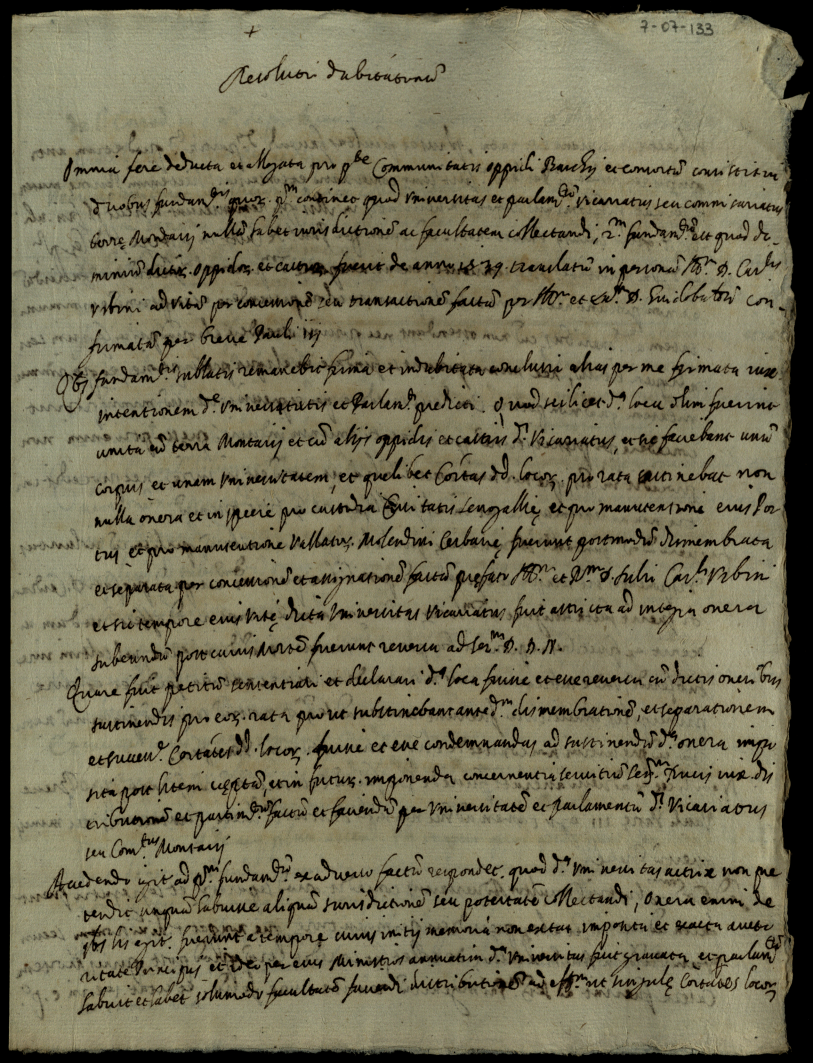 7-07-133
+
Resolutio dubitationū
Omnia fere deducta et allegata pro p.te Communitatis oppidi Barchij et consortiū consistit in
duobus fundam.tis quor. p.m continet quod Universitas et parlam.tū Vicariatus seu commissariatus
terrę Montaij nullā habet iurisdictionē ac facultatem collectandi, 2.m fundam.tū est quod do-
miniū dictor. oppidor. et castror. fuerit de anno 39 translatū in personā Ill.mi D. Car.lis
Urbini ad vitā per concessionē seu transactionē factā per Ill.m et D. Guidobaldū con-
firmatā per breve Pauli iij
Q.bs fundam.tis sublatis remanebit firma et indubitata conclusio alias per me firmata iux.
intentionem d.ę Universitatis et Parlam.ti predicti. Quod scilicet d.a loca olim fuerint
unita cū terra Montaij et cū alijs oppidis et castris d.i Vicariatus, et sic faciebant unū
corpus et unam universitatem, et quelibet Coītas dd. locor. pro rata sustinebat non
nulla onera et in specie pro custodia Civitatis Senogallię, et pro manutensione eius Por
tus et pro manutentione Vallatus Molendini Cerbarię fuerunt postmodū dismembrata
et separata per concessionē et assignationē factā prefato Ill.mo et R.mo D. Julio Car.li Urbini
et sic tempore eius vitę dicta Universitas Vicariatus fuit astricta ad integra onera
subeundū post cuius mortē fuerunt reversa ad Ser.m D. D. N.
Quare fuit petitū sententiari et declarari d.a loca fuisse et esse reversa cū dictis oneribus
sustinendis pro eor. rata prout substinebant ante d.m dismembrationē, et separationem
et Coītates dd. locor. fuisse et esse condemnandas ad sustinendū d.a onera impo
sita post litem ceptā, et in futur. imponenda concernentia servitiū Ser.mi Ducis iux. dis
tributionē et factū et faciendū per Universitatē et parlamentū d.i Vicariatus
seu Com.tus Montaij
Accedendo igit. ad p.m fundam.tū ex adverso factū respondet. quod d.a universitas actrix non pre
tendit unquā habuisse aliquā iurisdictionē seu potestatē collectandi, onera enim de
q.bs hic agit. fuerunt a tempore cuius initij memoria non extat imposita et exacta aucto
ritate Principis et per eius Ministros annuatim d.a universitas fuit gravata et parlam.tū
habuit et habet solumodo facultatē faciendi distributionē ad eff.m ut singulę Coītates locor.